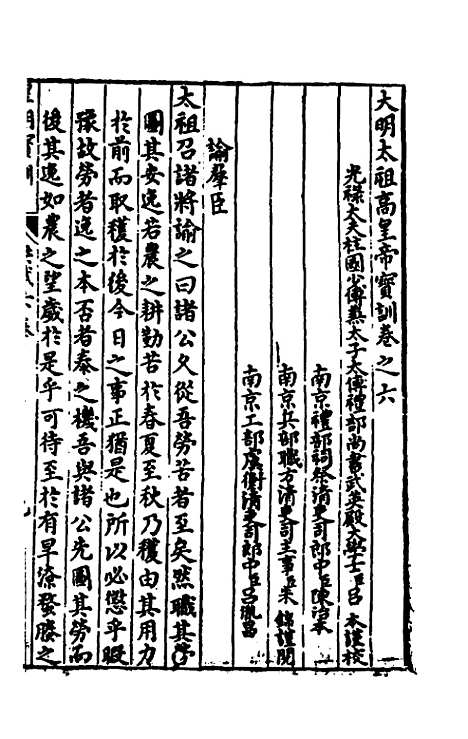 大明太祖高皇帝寶訓卷之六
光祿大夫柱國少傅兼太子太傅禮部尚書武英殿大學士臣呂 本謹校
南京禮部祠祭清吏司郎中臣陳治本
南京兵部職方清吏司主事臣朱 錦謹閱
南京工部虞衡清吏司郎中臣呂胤昌
諭羣臣
太祖召諸將諭之曰諸公久從吾勞苦者至矣然職其勞
圖其安逸若農之耕勤苦於春夏至秋乃穫由其用力
於前而取穫於後今日之事正猶是也所以必懲乎暇
豫故勞者逸之本否者泰之機吾與諸公先圖其勞而
後其逸如農之望歲於是乎可待至於有旱潦螽螣之